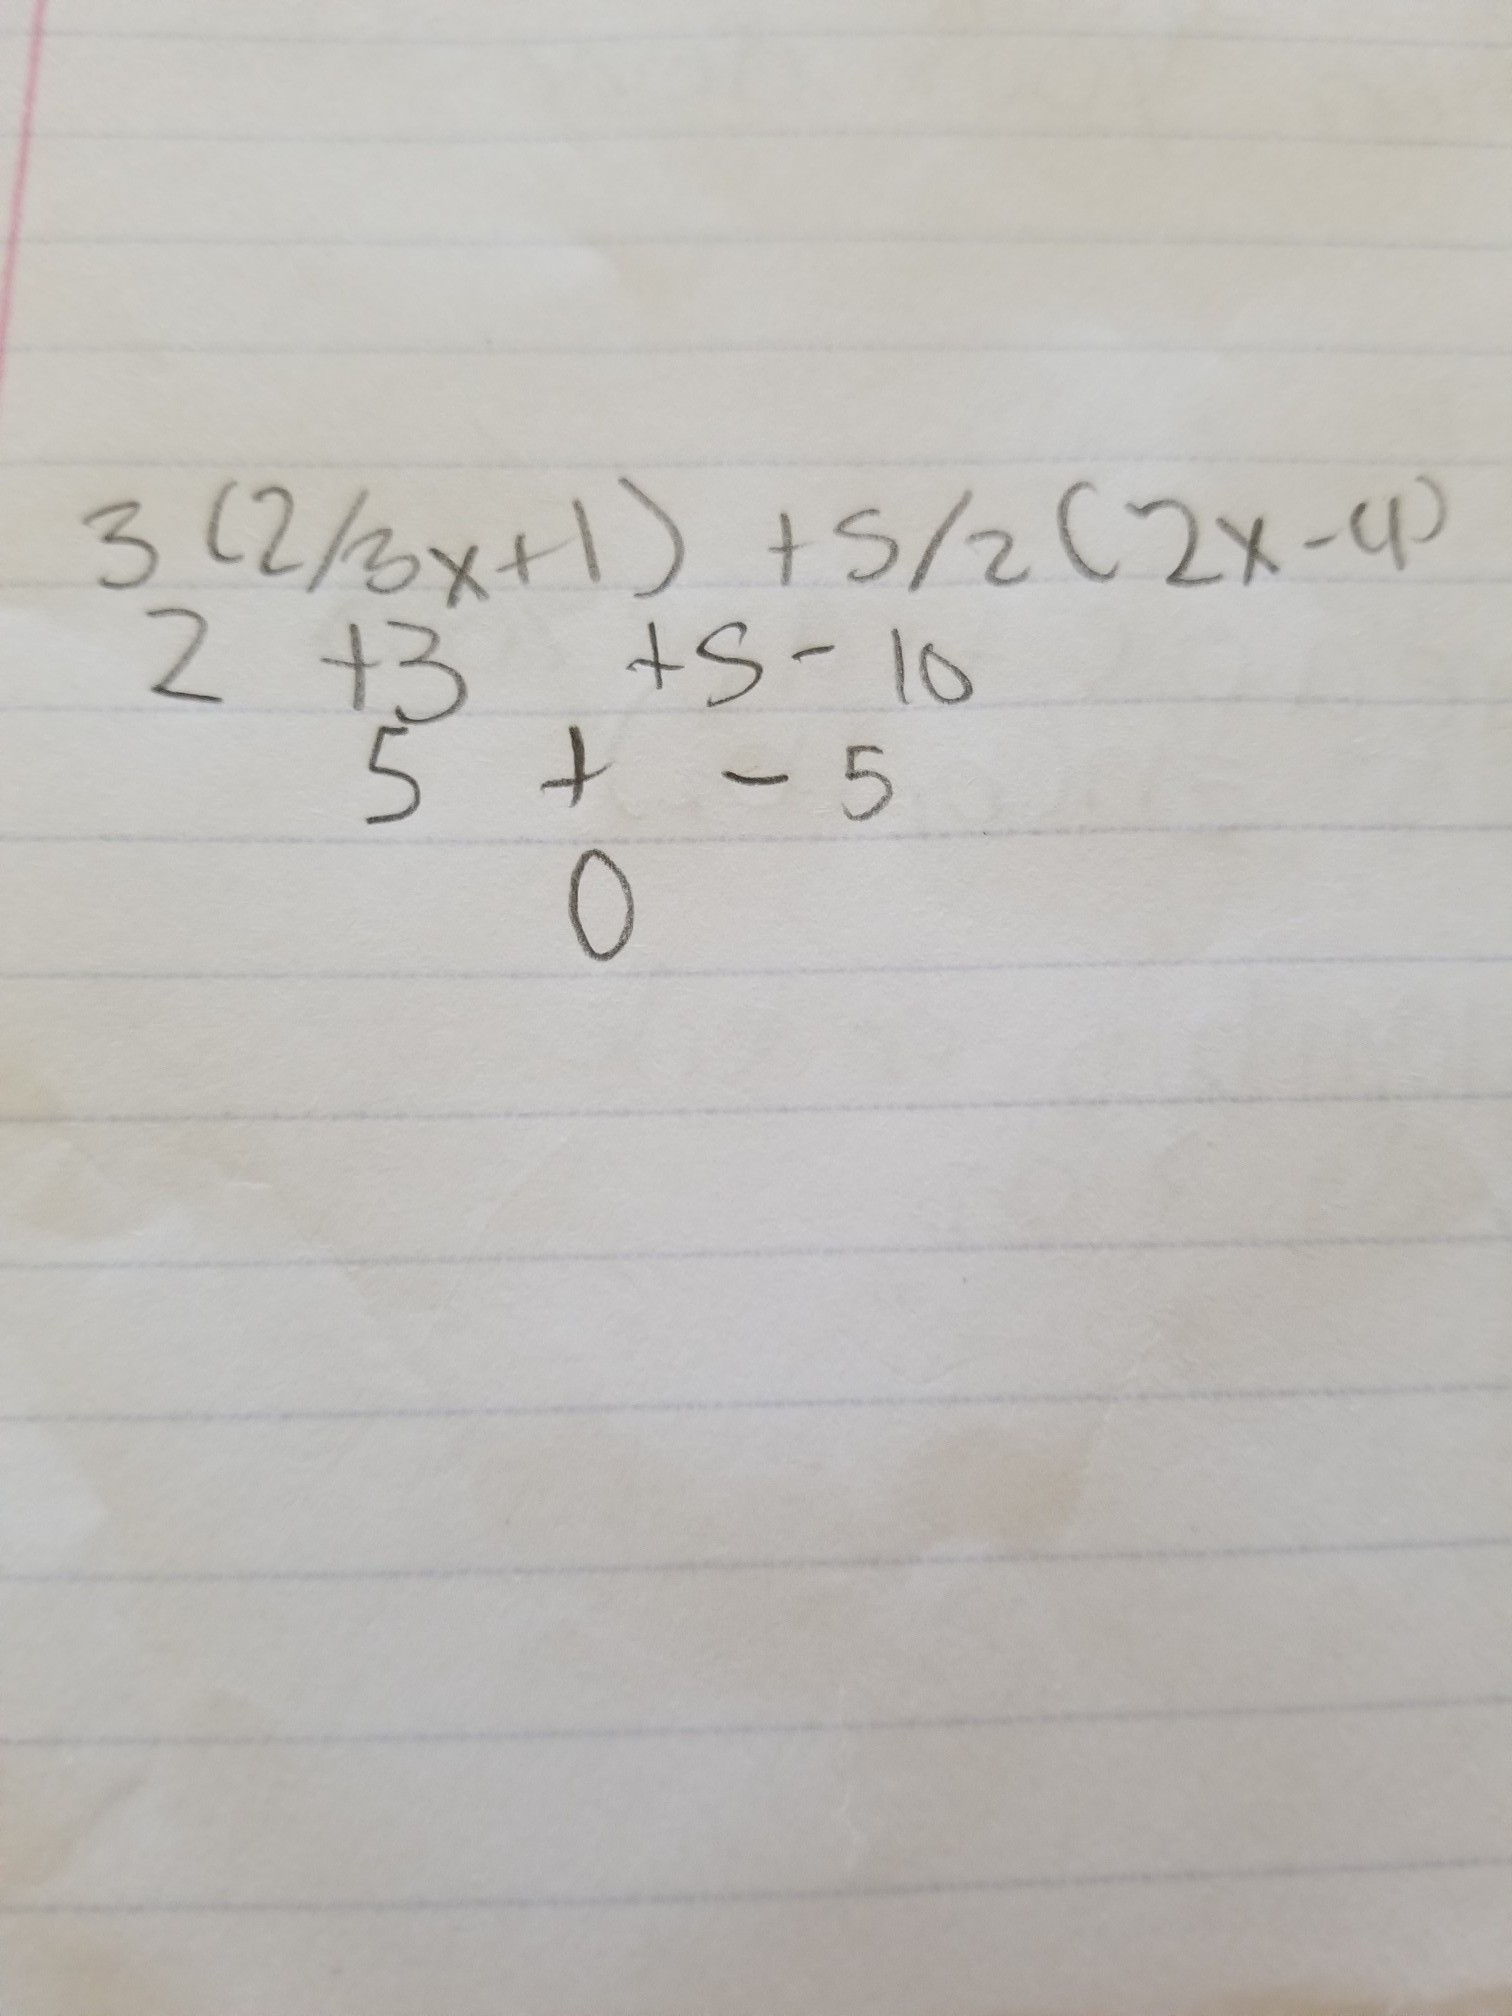 3 (2/3x+1) +5/2 (2x-4)
2 +3 +5 - 10
5 + - 5
0